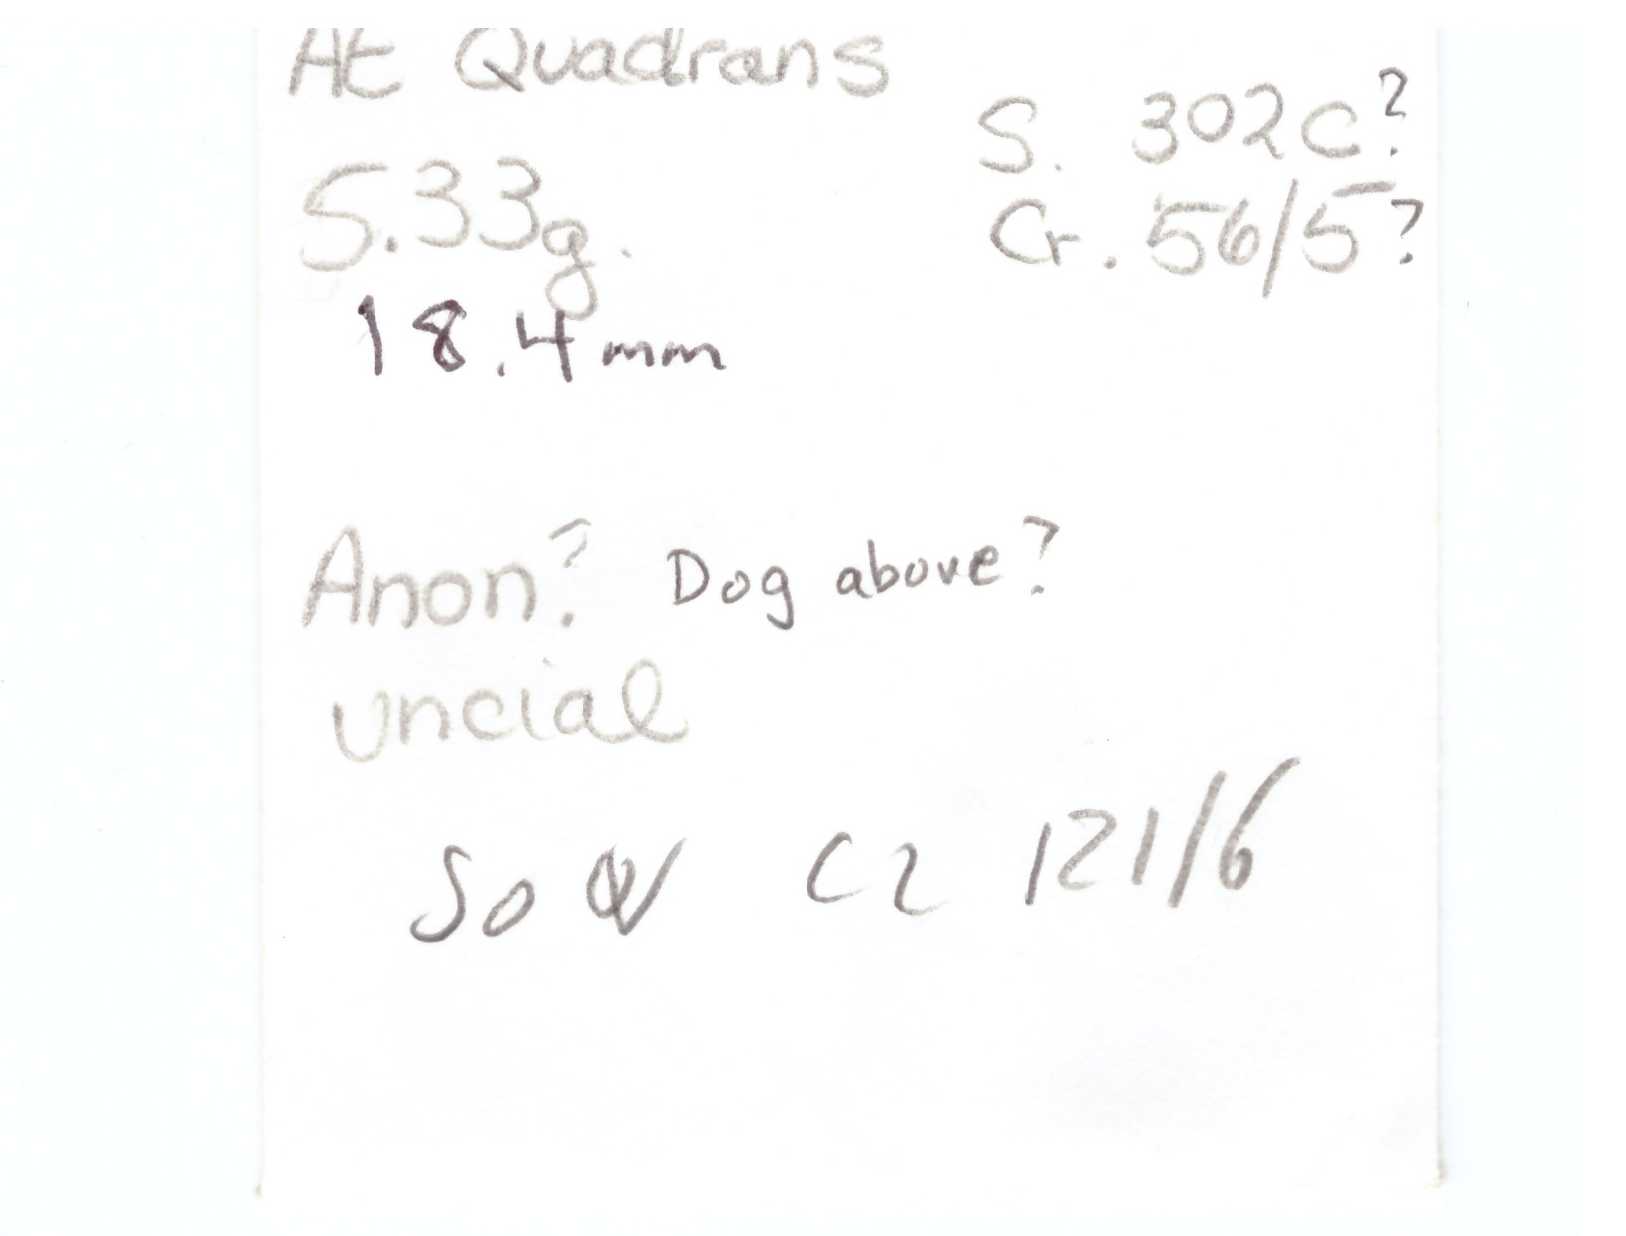 AE Quadrans
S. 302C?
5.33g.
Cr. 56/5?
18.4mm
Anon? Dog above?
uncial
So Cr 121/6